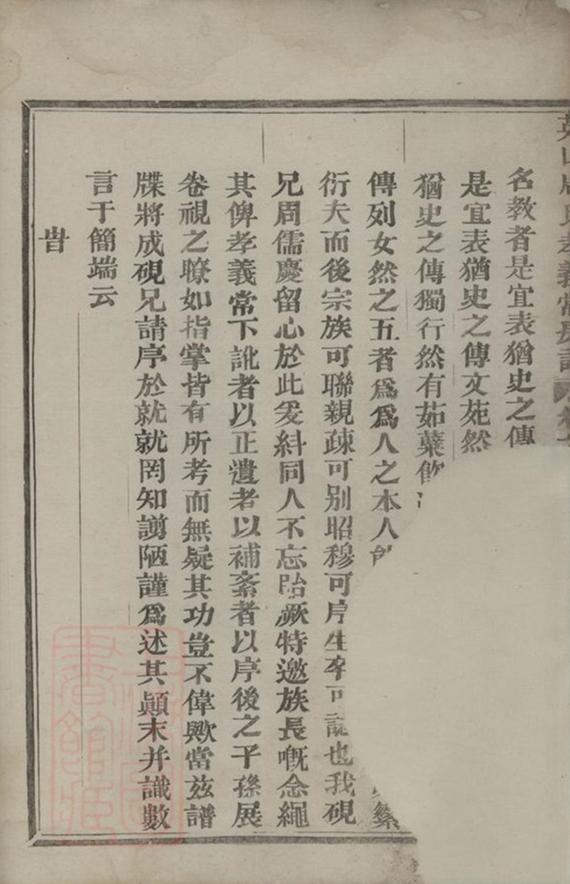 名教者是宜表猶史之傳
是宜表猶史之傳文苑然
猶史之傳獨行然有茹蘗飲
傳列女然之五者爲爲人之本人
繁
衍夫而後宗族可聯親疎可别昭穆可序生卒可誌也我硯
兄周儒慶留心於此爰糾同人不忘貽厥特邀族長慨念繩
其俾孝義常下訛者以正遺者以補紊者以序後之子孫展
卷視之瞭如指掌皆有所考而無疑其功豈不偉歟當兹譜
牒將成硯兄請序於就就罔知謭陋謹爲述其顚末并識數
言于簡端云
旹